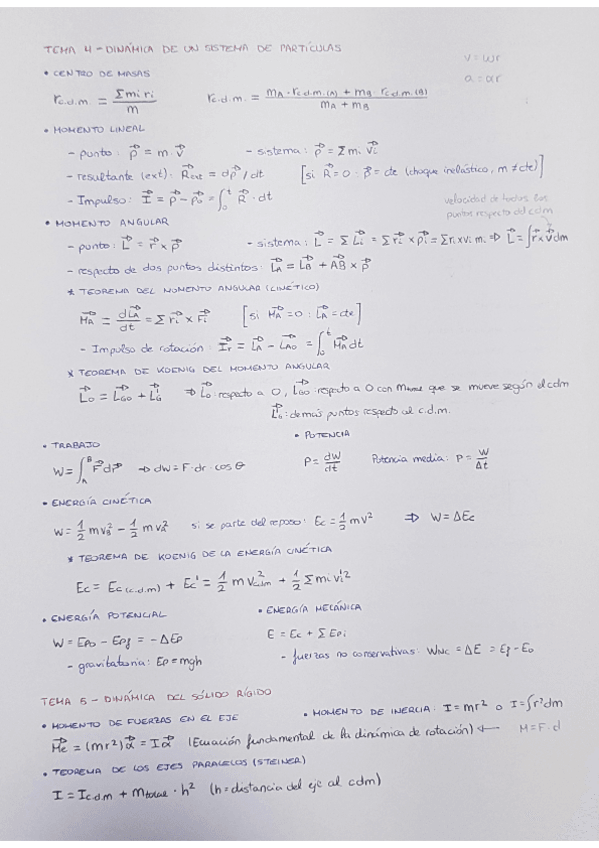 TEMA 4 - DINÁMICA DE UN SISTEMA DE PARTÍCULAS
v = ωr
a = αr
• CENTRO DE MASAS
r c.d.m. = Σ mi ri / m    r c.d.m. = (mA · r c.d.m.(A) + mB · r c.d.m.(B)) / (mA + mB)
• MOMENTO LINEAL
- punto: p⃗ = m · v⃗    - sistema: p⃗ = Σ mi v⃗i
- resultante (ext): R⃗ext = dp⃗/dt    [si R⃗ = 0 : p⃗ = cte (choque inelástico, m ≠ cte)]
- Impulso: I⃗ = p⃗ - p⃗o = ∫₀ᵗ R⃗ · dt
velocidad de todos los
puntos respecto del cdm
• MOMENTO ANGULAR
- punto: L⃗ = r⃗ x p⃗    - sistema: L⃗ = Σ L⃗i = Σ r⃗i x p⃗i = Σ ri x vi mi ⇒ L⃗ = ∫ r⃗ x v⃗ dm
- respecto de dos puntos distintos: L⃗A = L⃗B + AB⃗ x p⃗
* TEOREMA DEL MOMENTO ANGULAR (CINÉTICO)
M⃗A = dL⃗A/dt = Σ r⃗i x F⃗i    [si M⃗A = 0 : L⃗A = cte]
- Impulso de rotación: I⃗r = L⃗A - L⃗Ao = ∫₀ᵗ M⃗A dt
* TEOREMA DE KOENIG DEL MOMENTO ANGULAR
L⃗o = L⃗GO + L⃗'G ⇒ L⃗o: respecto a O, L⃗GO: respecto a O con Mtotal que se mueve según el cdm
L⃗'G: demás puntos respecto al c.d.m.
• TRABAJO    • POTENCIA
W = ∫ₐᴮ F⃗ dr⃗ ⇒ dW = F · dr · cos θ    P = dW/dt    Potencia media: P = W/Δt
• ENERGÍA CINÉTICA
W = 1/2 m vB² - 1/2 m vA²    si se parte del reposo: Ec = 1/2 mv² ⇒ W = ΔEc
* TEOREMA DE KOENIG DE LA ENERGÍA CINÉTICA
Ec = Ec (c.d.m) + Ec' = 1/2 m v²cdm + 1/2 Σ mi vi'²
• ENERGÍA POTENCIAL    • ENERGÍA MECÁNICA
W = Epo - Epf = -ΔEp    E = Ec + Σ Epi
- gravitatoria: Ep = mgh    - fuerzas no conservativas: WNC = ΔE = Ef - Eo
TEMA 5 - DINÁMICA DEL SÓLIDO RÍGIDO
• MOMENTO DE FUERZAS EN EL EJE    • MOMENTO DE INERCIA: I = mr² o I = ∫ r² dm
M⃗e = (mr²) α⃗ = I α⃗ (Ecuación fundamental de la dinámica de rotación) ⇐ M = F · d
• TEOREMA DE LOS EJES PARALELOS (STEINER)
I = I c.d.m + mtotal · h² (h = distancia del eje al cdm)